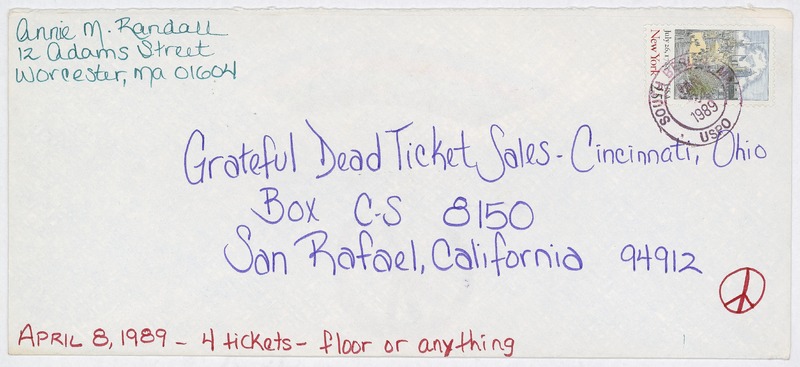 Annie M. Randall
12 Adams Street
Worcester, Ma 01604
July 26, 1788
New York
USA
SOUTH
1989
USPO
Grateful Dead Ticket Sales - Cincinnati, Ohio
Box C-S 8150
San Rafael, California 94912
April 8, 1989 - 4 tickets - floor or anything